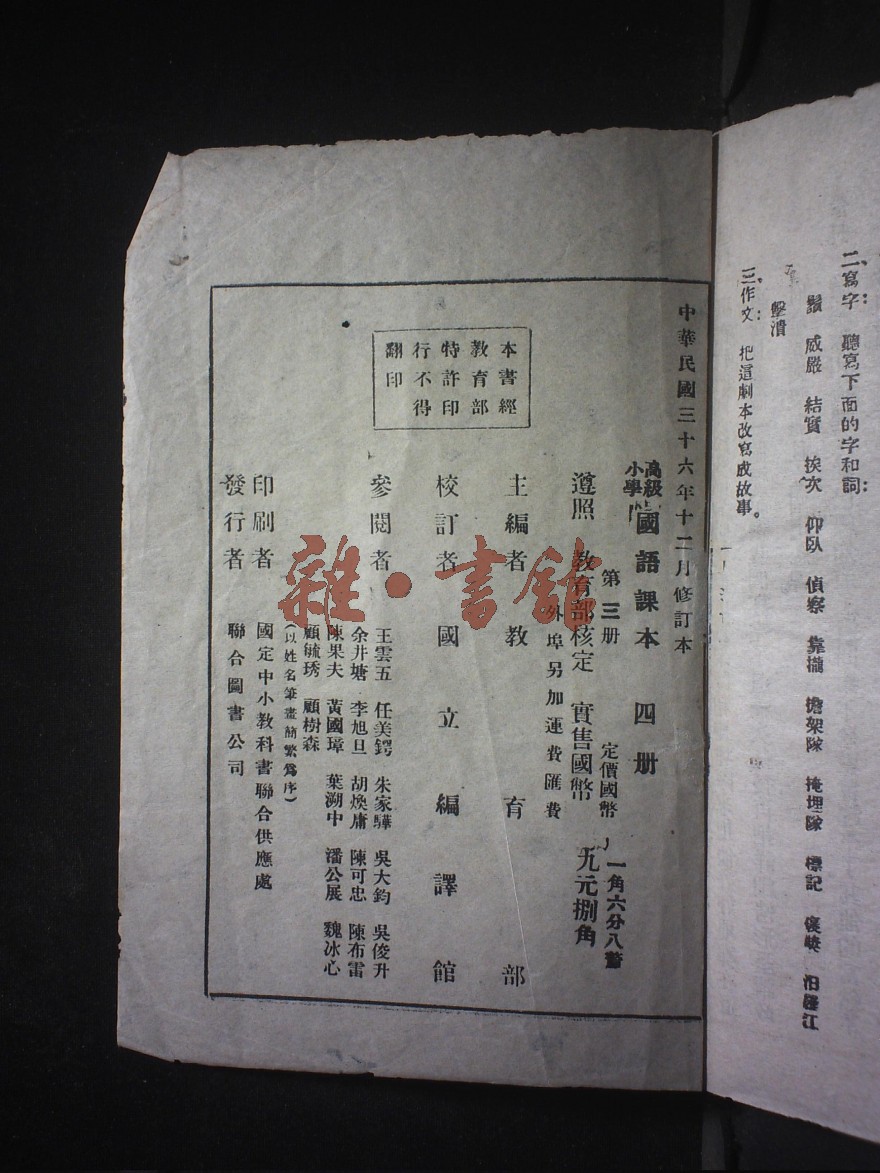 二、寫字：聽寫下面的字和詞：
鬚 威嚴 結實 挨次 仰臥 偵察 靠攏 擔架隊 掩埋隊 標記 汨羅江
擊潰
三、作文：把這劇本改寫成故事。
中華民國三十六年十二月修訂本
高級小學 國語課本 四册
第三册 定價國幣 一角六分八釐
遵照 教育部核定 實售國幣 九元捌角
外埠另加運費匯費
本書經
教育部
特許印
行不得
翻印
主編者 教育部
校訂者 國立編譯館
參閱者 王雲五 任美鍔 朱家驊 吳大鈞 吳俊升
余井塘 李旭旦 胡煥庸 陳可忠 陳布雷
陳果夫 黃國璋 葉溯中 潘公展 魏冰心
顧毓琇 顧樹森
（以姓名筆畫簡繁爲序）
印刷者 國定中小教科書聯合供應處
發行者 聯合圖書公司
雜·書館